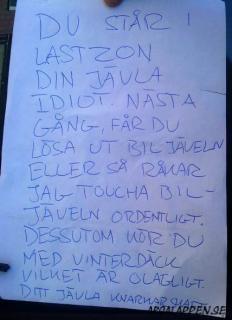 DU STÅR I
LASTZON
DIN JÄVLA
IDIOT. NÄSTA
GÅNG, FÅR DU
LÖSA UT BILJÄVELN
ELLER SÅ RÅKAR
JAG TOUCHA BIL-
JÄVELN ORDENTLIGT.
DESSUTOM KÖR DU
MED VINTERDÄCK
VILKET ÄR OLAGLIGT.
DITT JÄVLA
ARGALAPPEN.SE